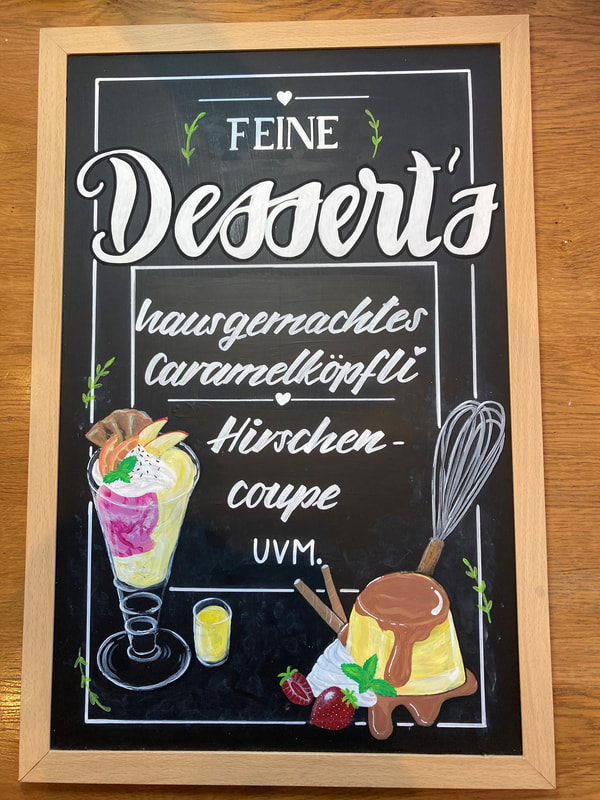 FEINE
Dessert's
hausgemachtes
Caramelköpfli
Hirschen-
coupe
UVM.